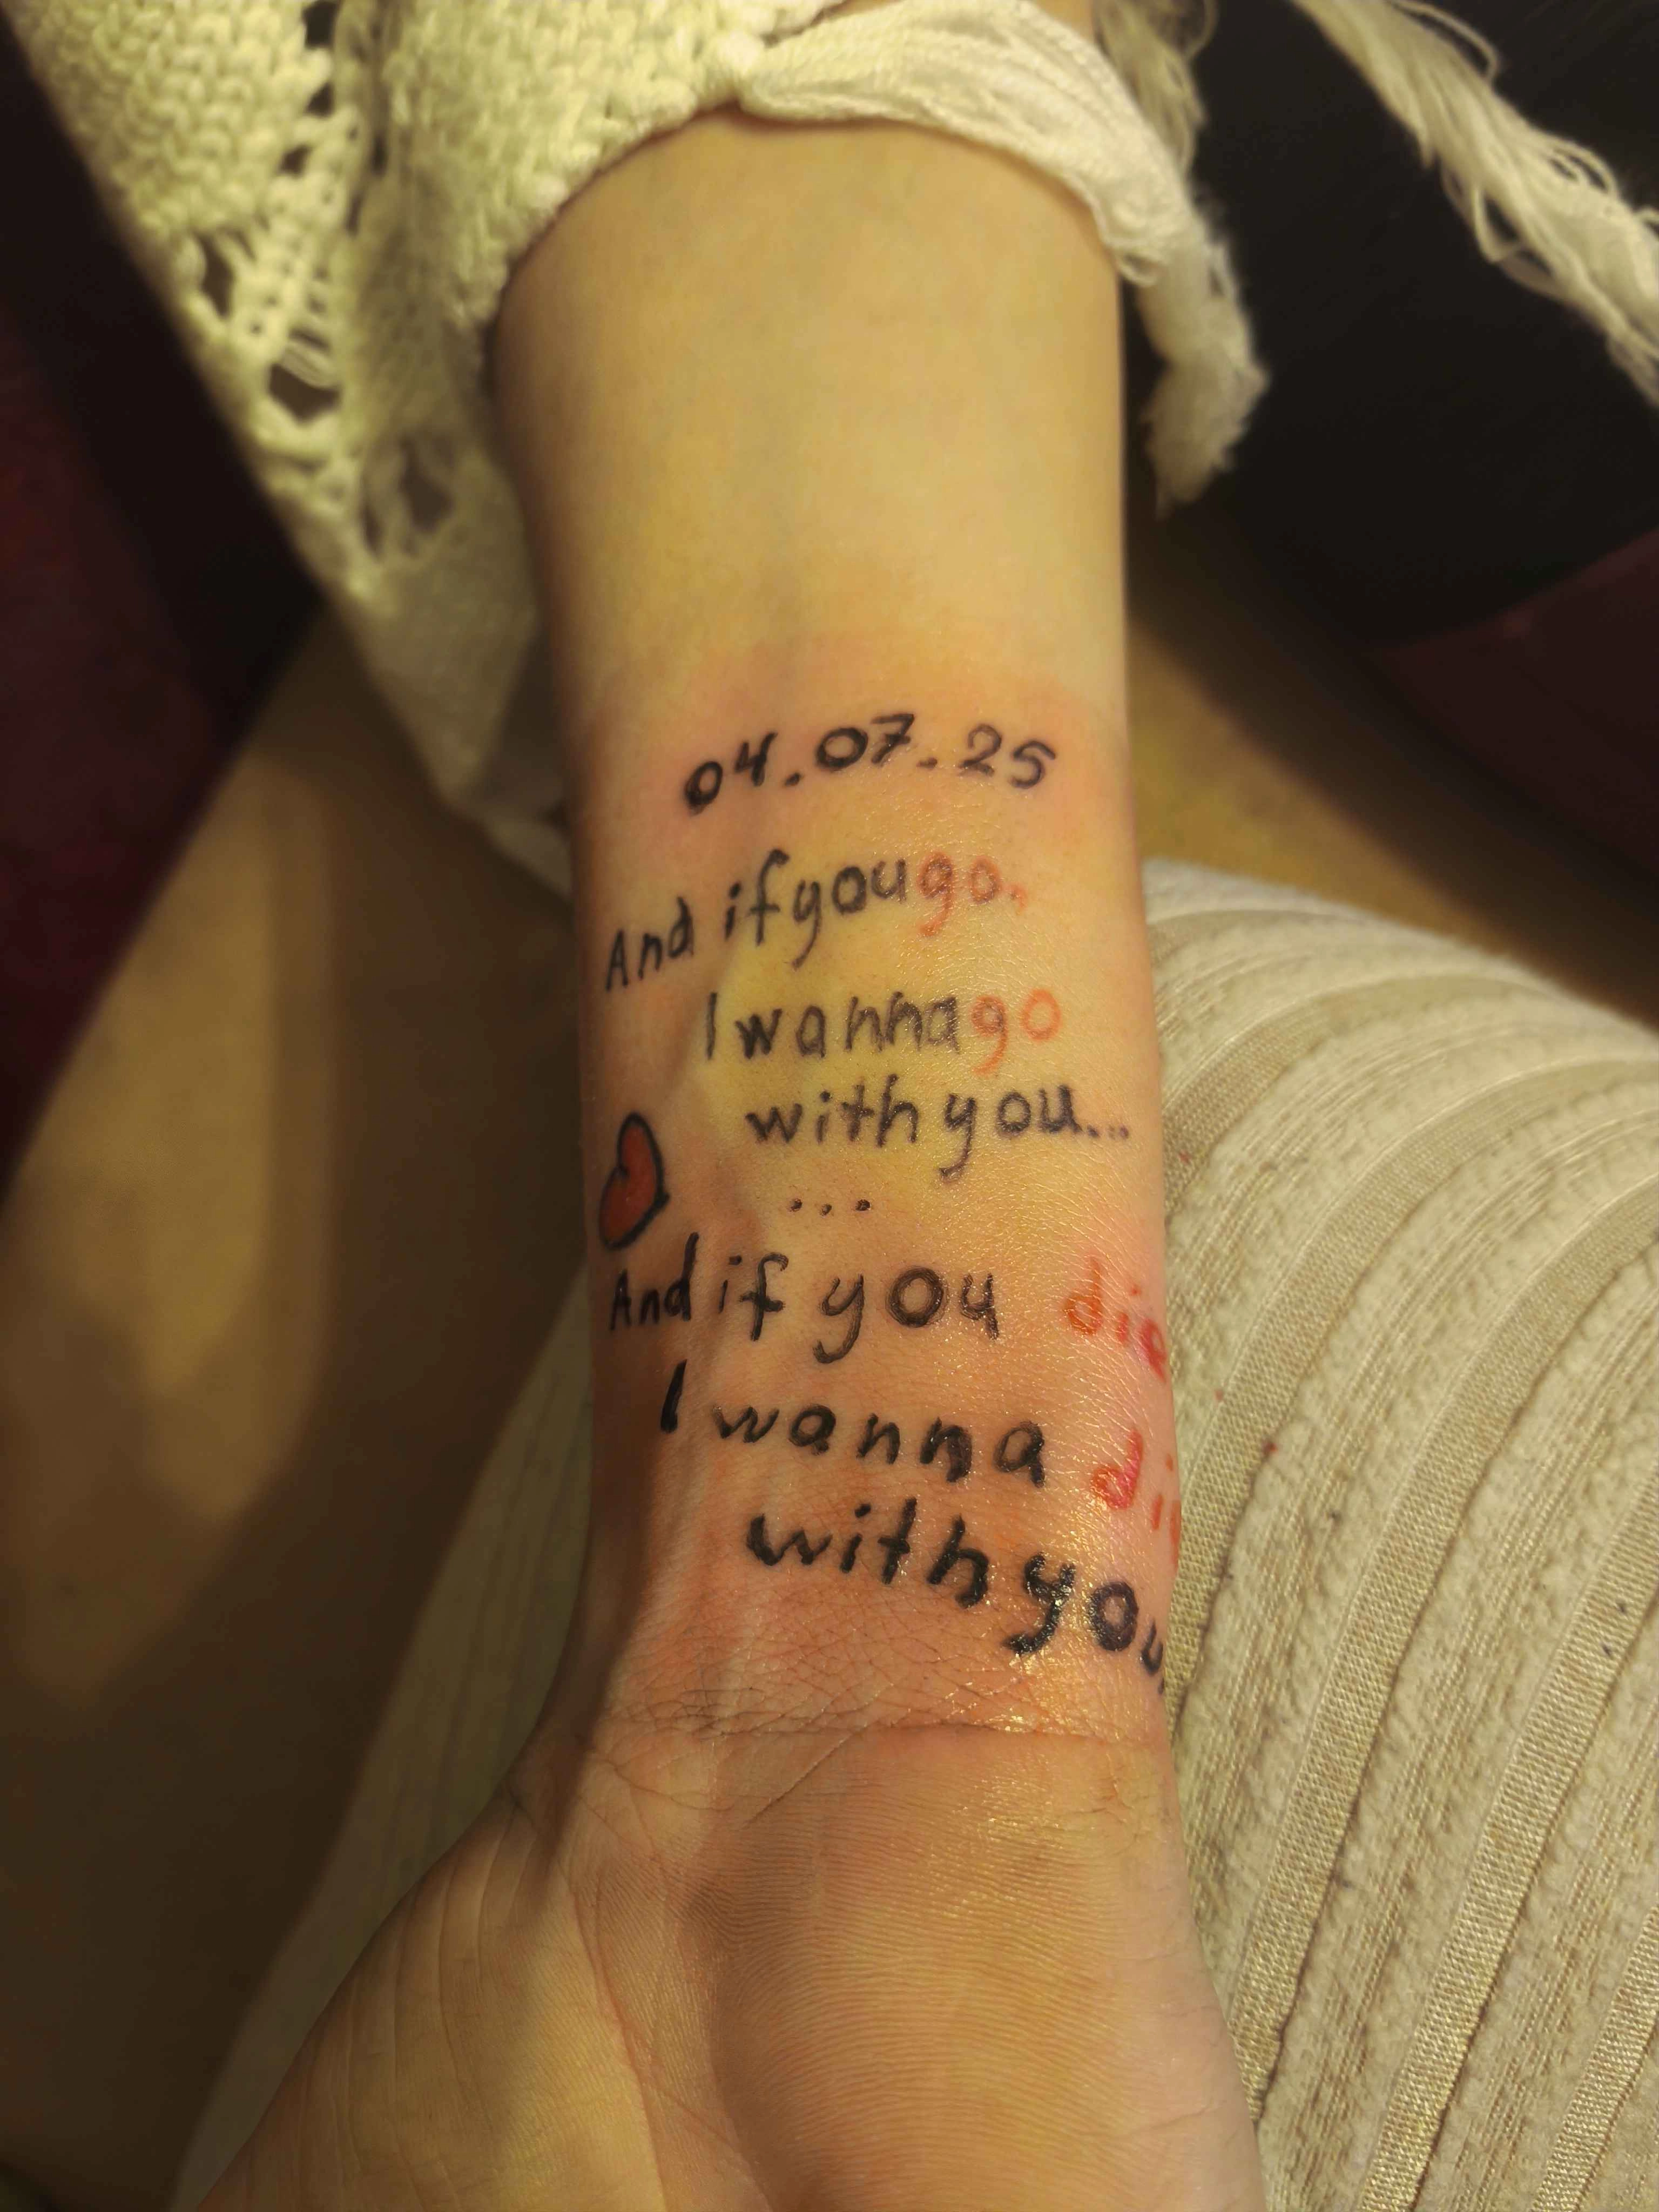 04.07.25
And if you go,
I wanna go
with you...
...
And if you die
I wanna di
with you